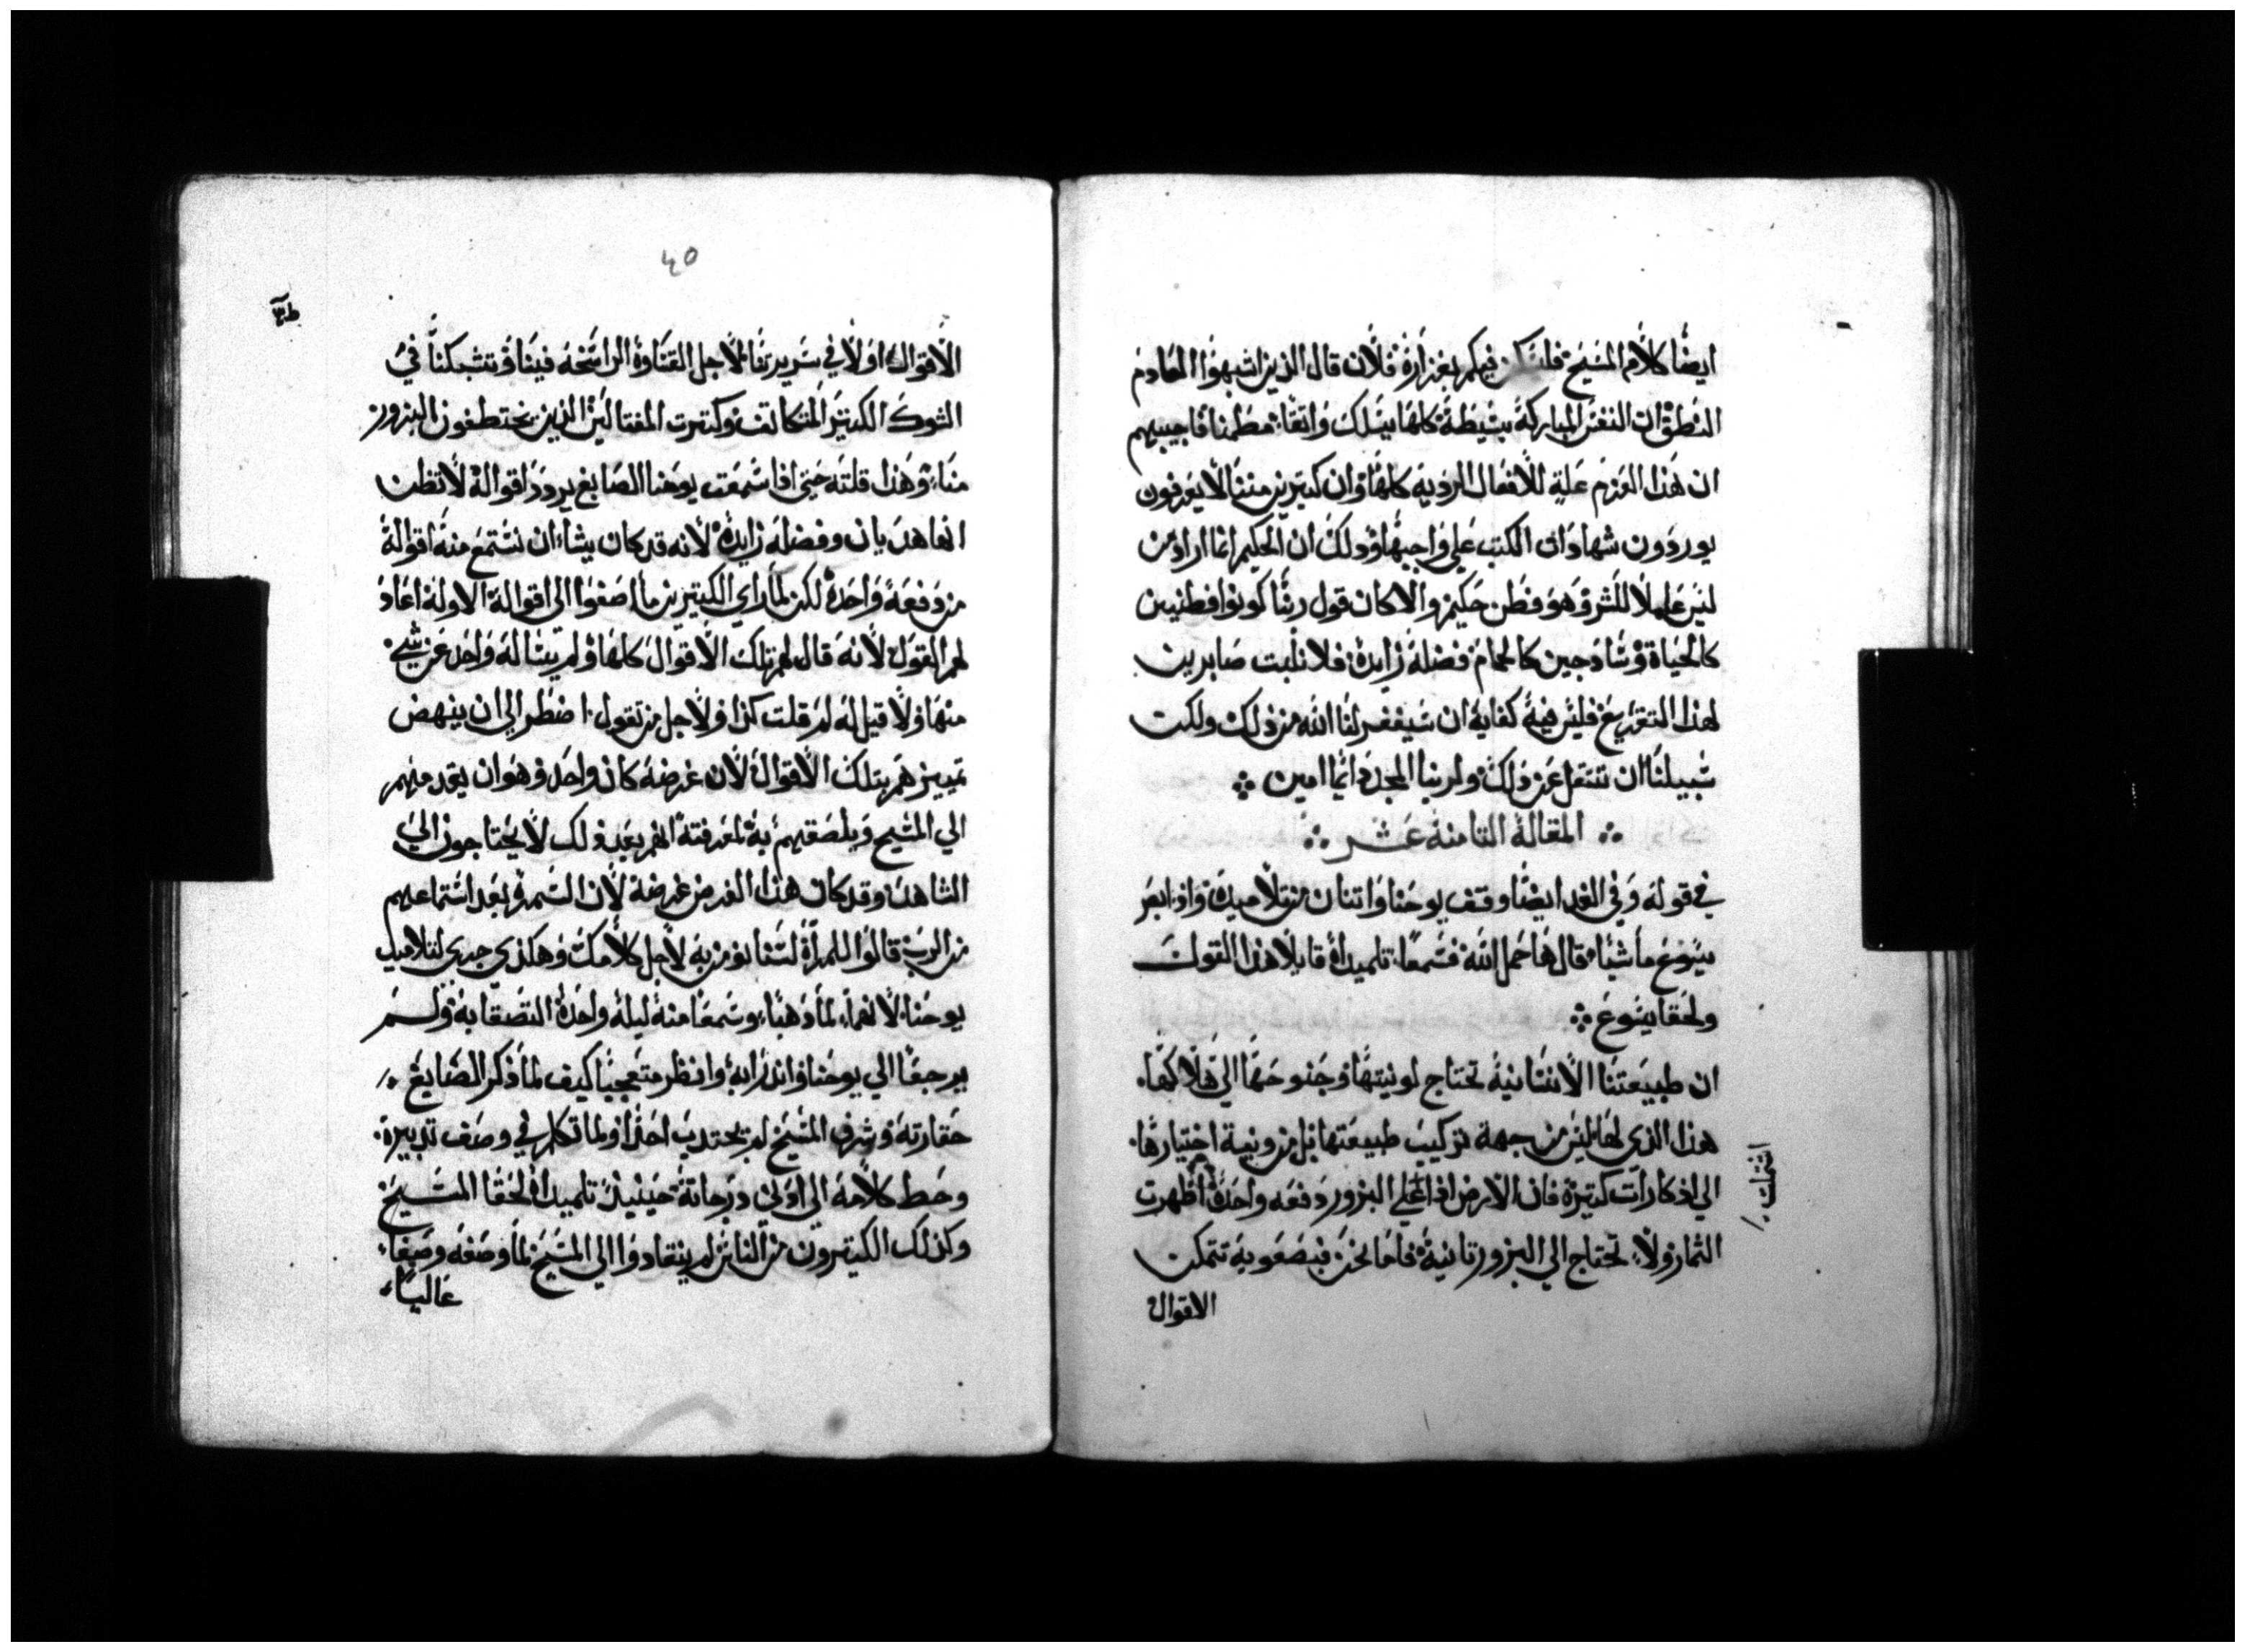 ايضًا كلام المسيح فلتسكن فيكم بغزارة فلان قال الذين اشبهوا العادم
النطق ان النفس المباركة بسيطة كلها يسلك واثقا مطمنا فاجيبهم
ان هذا العزم علة للافعال الرديه كلها وان كتيرين مننا لا يعرفون
يوردون شهادات الكتب علي واجبها وذلك ان الحكيم انما اراد من
ليس عاملا للشر وهو فطن حكيم والا كان قول ربنا كونوا فطنيين
كالحياة وسادجين كالحمام فضلة زايدة فلا نلبت صابرين
لهذا التقريع فليس فيه كفاية ان سيغفر لنا الله من ذلك ولكن
سبيلنا ان ننتقل عن ذلك ولربنا المجد دايما امين
المقالة التامنة عشر
في قوله وفي الغد ايضا وقف يوحنا واتنان من تلاميده واذ ابصر
يسوع ماشيا قال هاحمل الله فسمعا تلميداه قايلا هذا القول
ولحقا يسوع
ان طبيعتنا الانسانية تحتاج لونيتها وجنوحها الي هلاكها
هذا الذي لها ليس من جهة تركيب طبيعتها بل من ونية اختيارها
الي اذكارات كتيرة فان الارض اذا علي البزور دفعه واحدة اظهرت
اشتملت
الثمار ولا تحتاج الي البزور تانية فاما نحن فبصعوبة تتمكن
الاقوال
٤٥
الاقوال اولا في سريرتنا لاجل القساوة الراسخه فينا وتشبكنا في
الشوك الكتير المتكاتف وكترت المغتالين الذين يختطفون البزور
منا وهذا قلته حتي اذا سمعت يوحنا الصابغ يردد اقواله لا تظن
انها هديان وفضلة زايدة لانه قد كان يشا ان نستمع منه اقواله
من دفعة واحدة لكن لما راي الكتيرين ما اصغوا الي اقواله الاوله اعاد
لهم القول لانه قال لهم تلك الاقوال كلها ولم يساله واحد عن شي
منها ولا قيل له لم قلت كذا ولاجل من تقول اضطر الي ان ينهض
تمييزهم بتلك الاقوال لان غرضه كان واحد وهو ان يقدمهم
الي المسيح ويلصقهم به لمعرفته انهم بعد ذلك لا يحتاجون الي
الشاهد وقد كان هذا الغرض غرضه لان السمره بعد استماعهم
من الرب قالوا للمراة لسنا نومن به لاجل كلامك وهكذي جري لتلاميد
يوحنا لانهما لما دهبا وسمعا منه ليلة واحدة التصقا به ولم
يرجعا الي يوحنا وانظر متعجبا كيف لما ذكر الصابغ
حقارته وشرف المسيح لم يجتدب احدا ولما تكلم في وصف تدبيره
وحط كلامه الي اوفي درجاته حينيذ تلميداه لحقا المسيح
وكذلك الكتيرون من الناس لم ينقادوا الي المسيح لما وصفه وصفا
عاليا